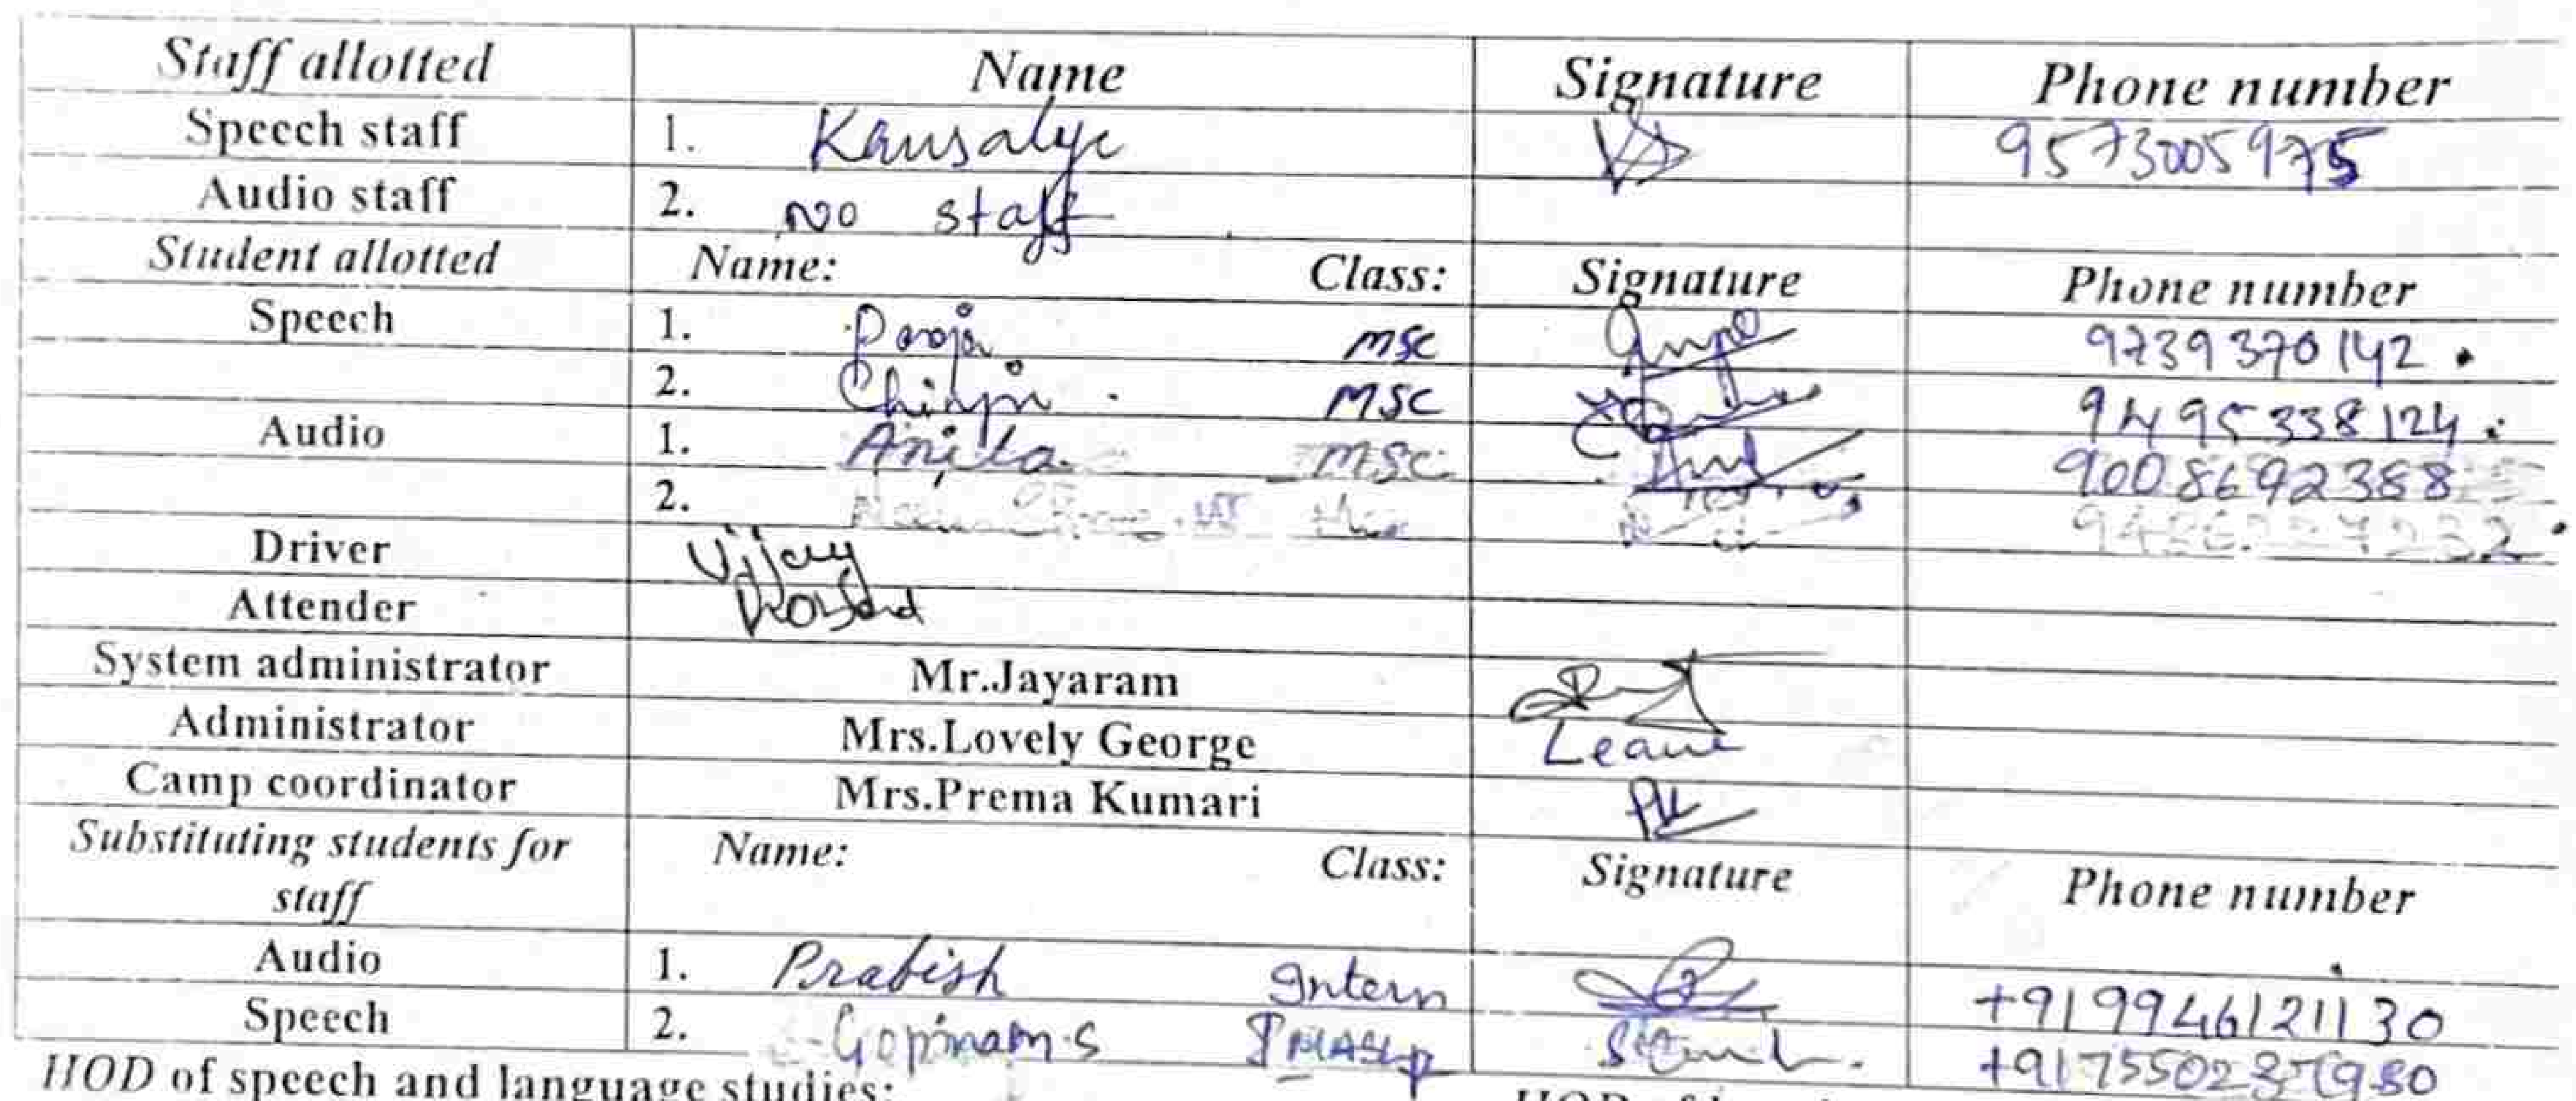 Staff allotted Name Signature Phone number
Speech staff 1. Kausalya 9573005975
Audio staff 2. No staff
Student allotted Name: Class: Signature Phone number
Speech 1. Pooja MSC 9739370142
2. MSC 9495338124
Audio 1. Anita MSC 9008692388
2.
Driver Vijay
Attender
System administrator Mr.Jayaram
Administrator Mrs.Lovely George Leave
Camp coordinator Mrs.Prema Kumari PK
Substituting students for Name: Class: Signature Phone number
staff
Audio 1. Prabish Intern +919946121130
Speech 2. Gopinath.S
HOD of speech and language studies: